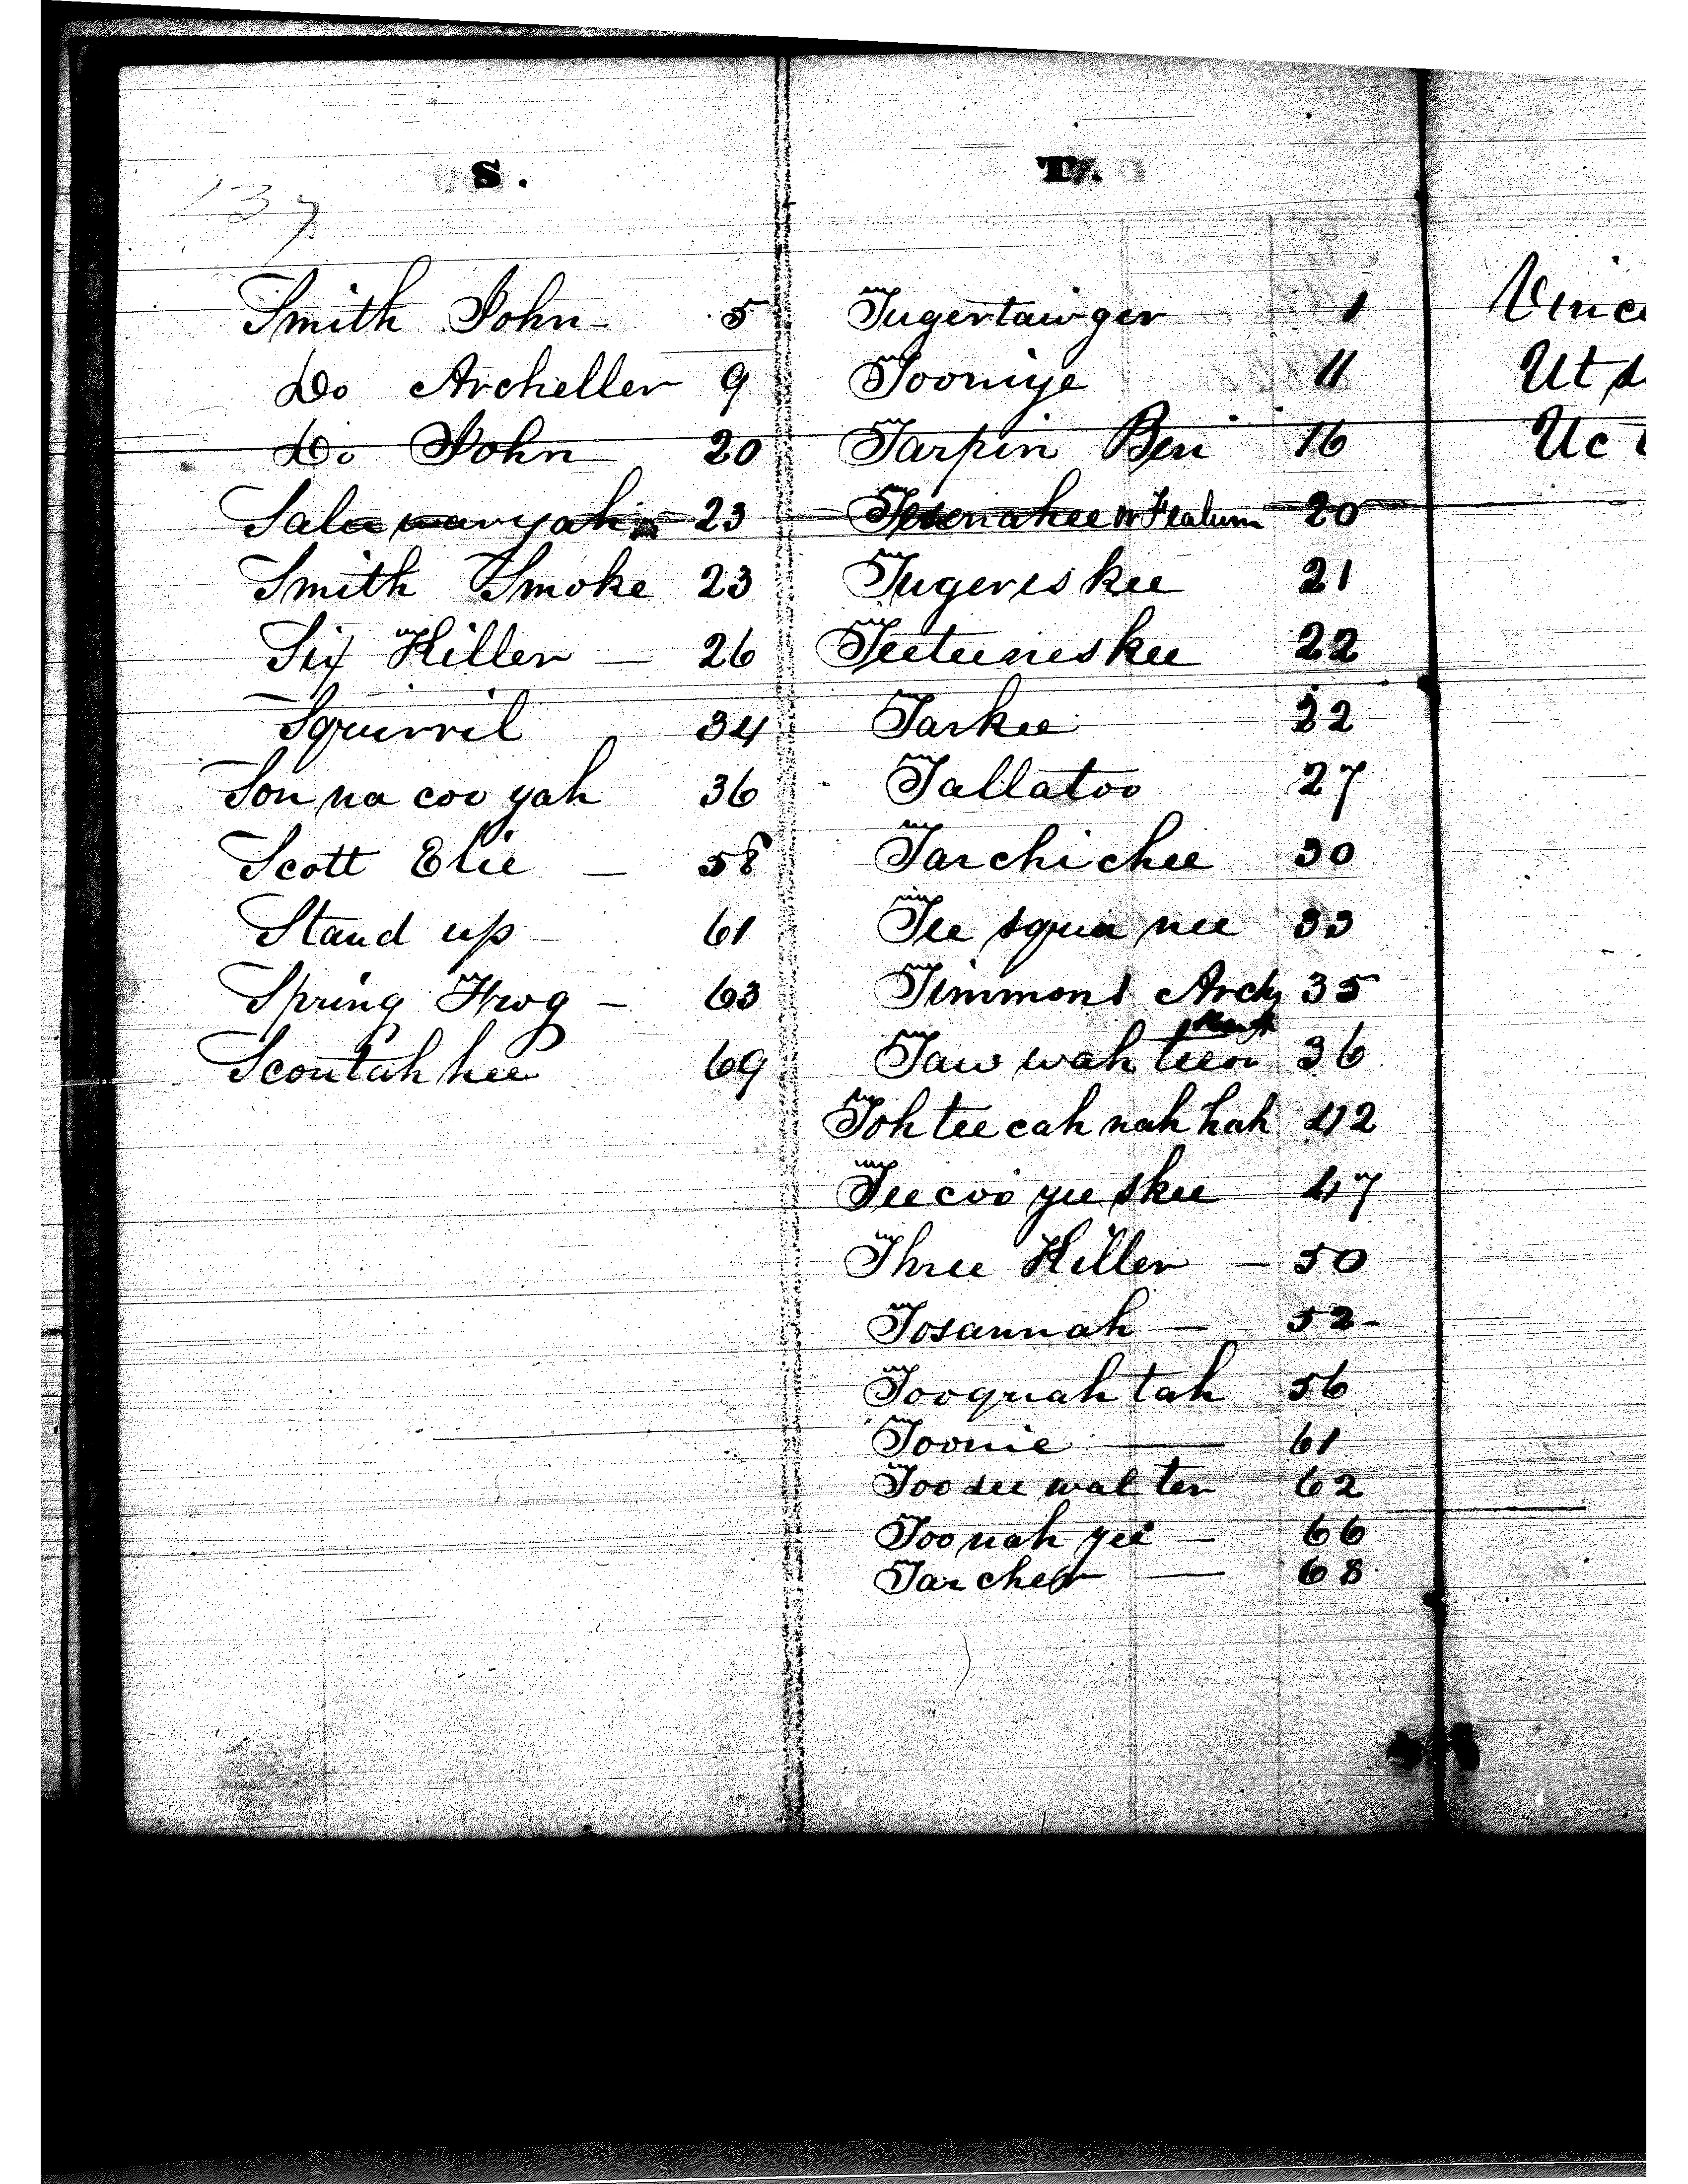 S.
137
Smith John 5
Do Archeller 9
Do John 20
Salawaryah 23
Smith Smoke 23
Six Killer — 26
Squirril 34
Son na coo yah 36
Scott Elie — 58
Stand up — 61
Spring Frog — 63
Scoutah hee 69
T.
Tugertawger 1
Tooniye 11
Tarpin Ben 16
or 20
Tugereskee 21
Teeteeneskee 22
Tarkee 22
Tallatoo 27
Tarchichee 30
Tee squa nee 33
Timmons Arch 35
Taw wah 36
Toh tee cah nah hah 42
Tee coo yee skee 47
Three Killer — 50
Tosannah — 52
Tooquah tah 56
Toonie — 61
Too see wal ter 62
Too nah yee — 66
Tarcher — 68